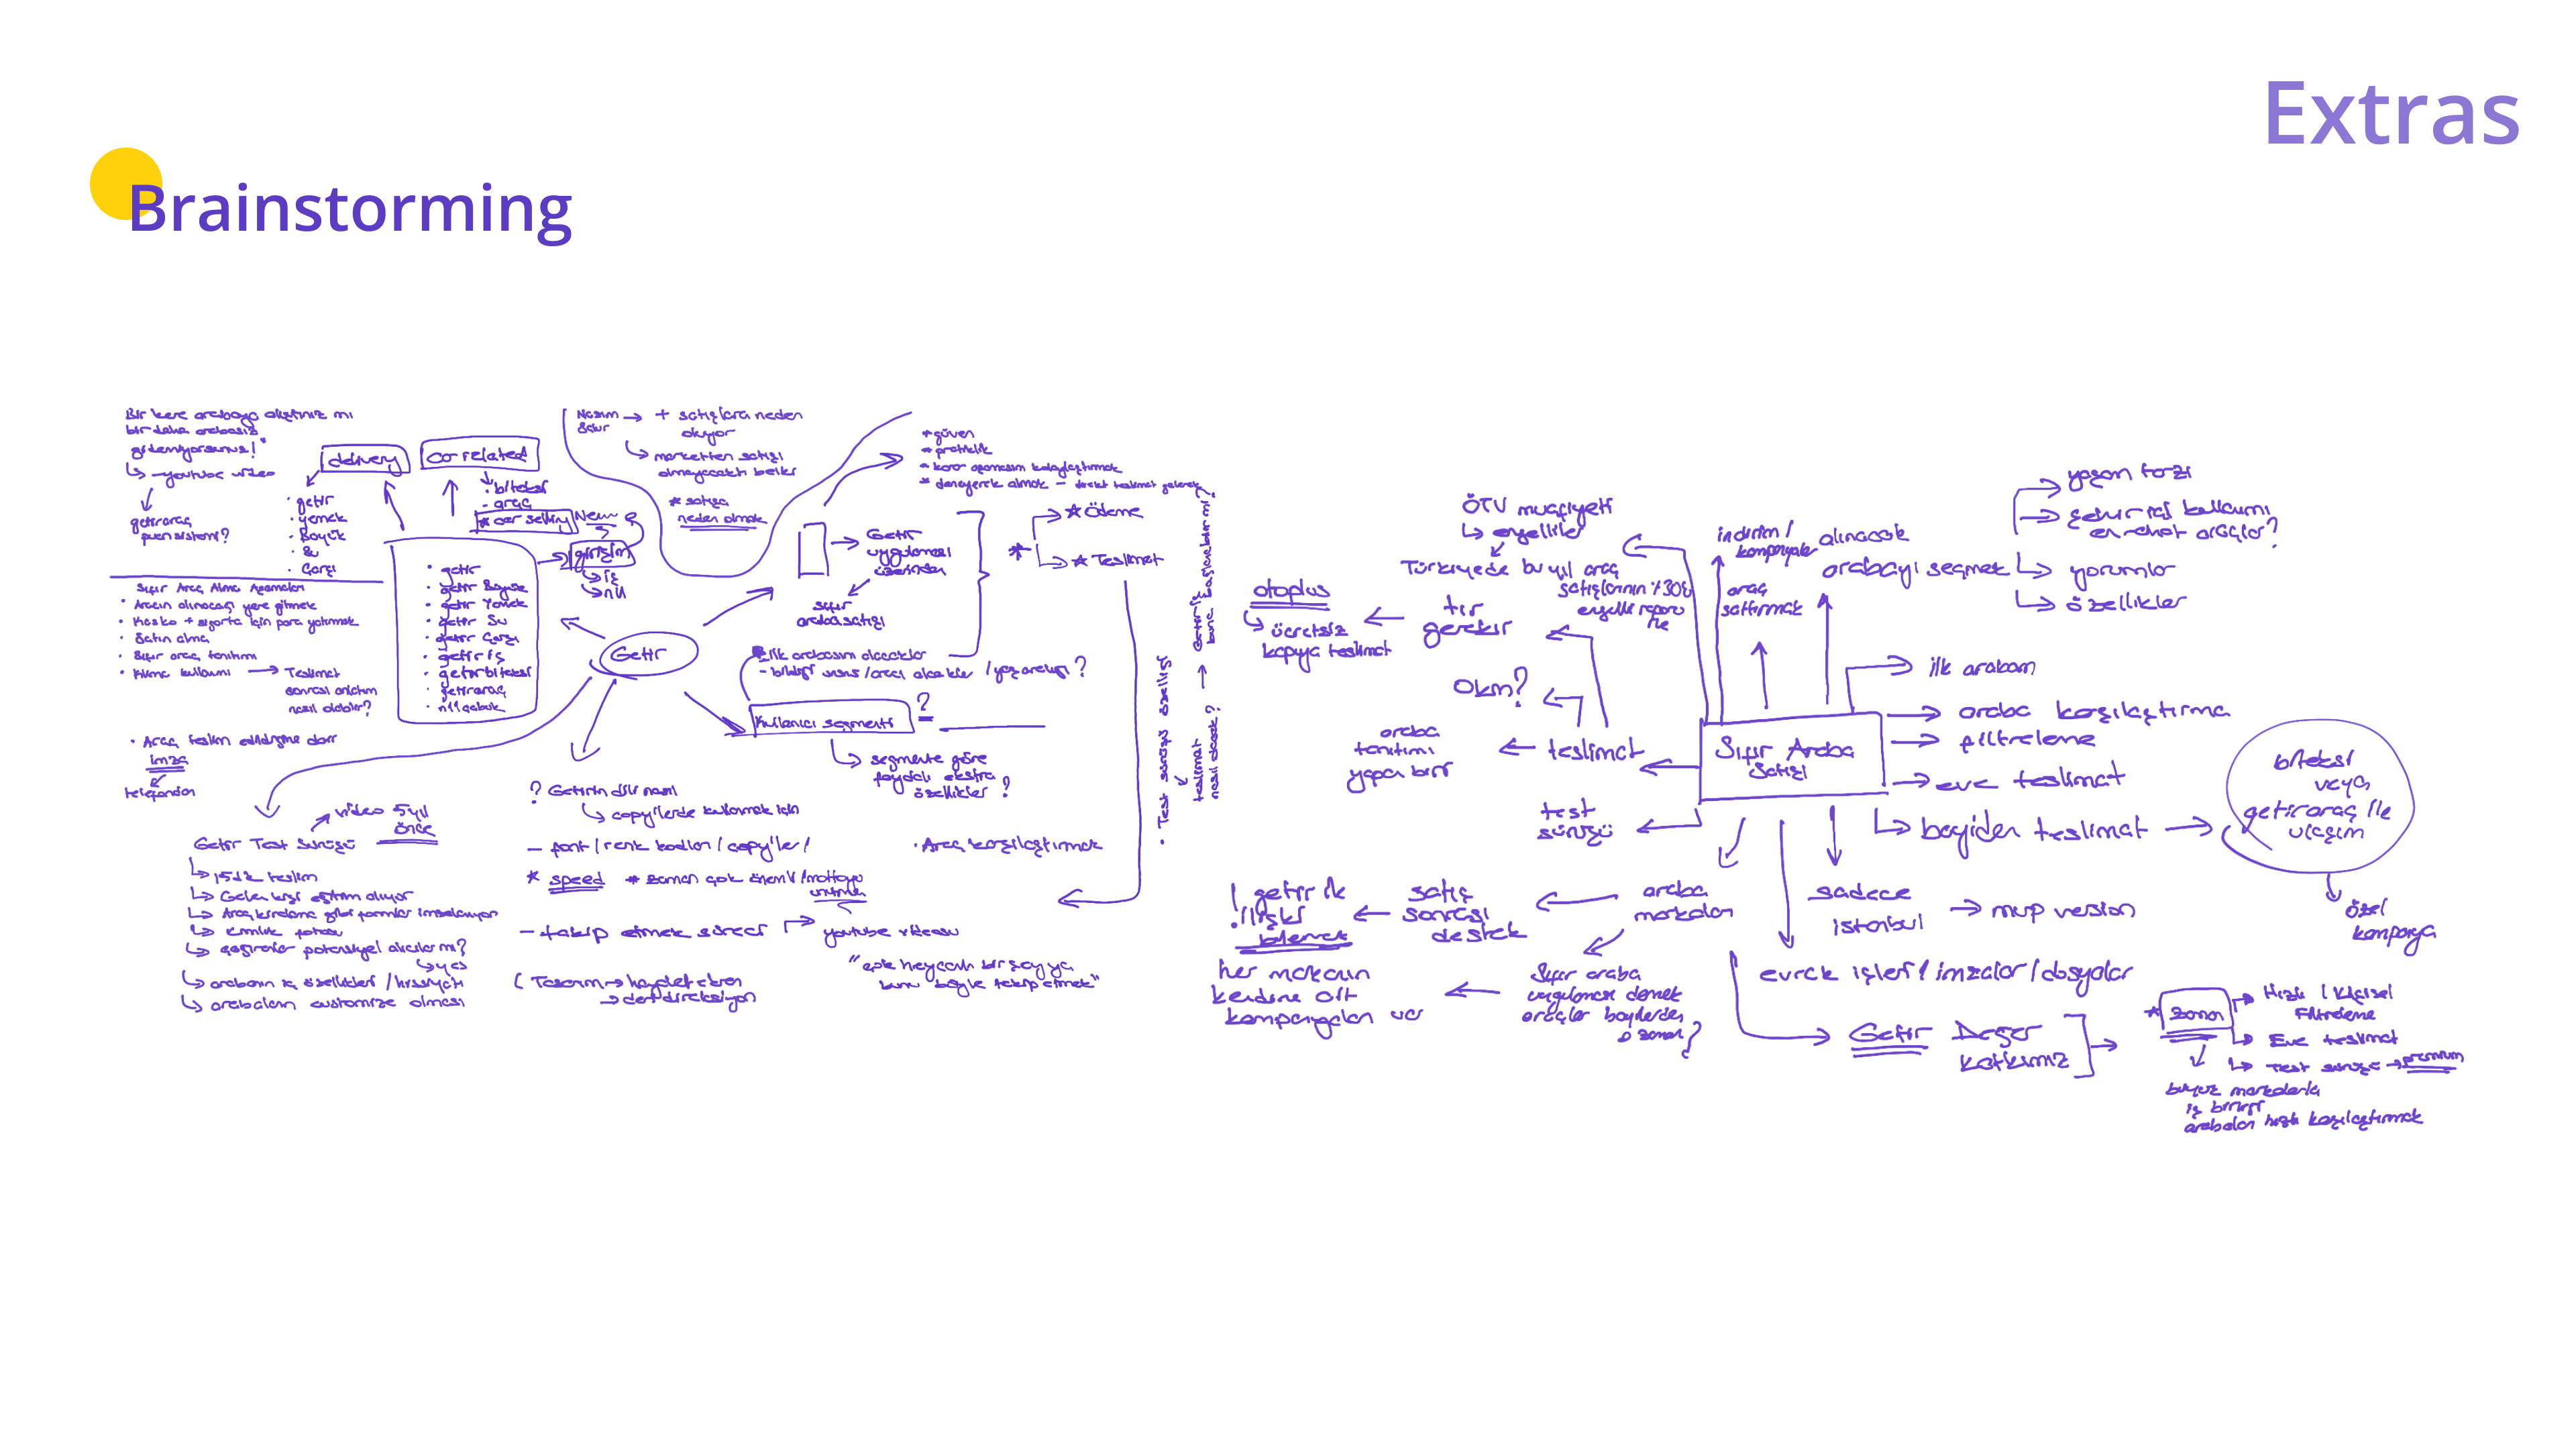 Extras
Brainstorming
Bir kere arabaya alıştınız mı
bir daha arabasız
gidemiyorsunuz!"
→ youtube video
getiraraç
puan sistemi?
delivery
· getir
· yemek
· Büyük
· Su
· Çarşı
co related
· bitaksi
- araç
* car selling
New
girişim
→ iş
→ n11
Nasım → + satışlara neden
oluyor
→ marketten satışı
olmayacaktı belki
* satışa
neden olmak
* güven
* pratiklik
* karar aşamasını kolaylaştırmak
* deneyerek almak – direkt teslimat gelerek
Sıfır Araç Alma Aşamaları
· Aracın alınacağı yere gitmek
· Kasko + sigorta için para yatırmak
· Satın alma
· Sıfır araç tanıtımı
· Klima kullanımı → Teslimat
sonrası anlatım
nasıl olabilir?
· getir
· getir Büyük
· getir Yemek
· getir Su
· getir Çarşı
· getir iş
· getirbitaksi
· getiraraç
· n11
Getir
→ Getir
uygulaması
üzerinden
sıfır
araba satışı
* → * Ödeme
→ * Teslimat
- ilk arabasını alacaklar
Kullanıcı segmenti ?
→ segmente göre
faydalı ekstra
özellikler ?
· Test sürüşü özelliği
teslimat
nasıl olacak?
· Araç teslim edildiğine dair
imza
telefondan
Getir Test Sürüşü
→ video 5 yıl
önce
→ 15dk teslim
→ Gelen kişi eğitim alıyor
→ Araç kiralama gibi formlar imzalanıyor
→ kimlik fotosu
→ çağıranlar potansiyel alıcılar mı?
→ yes
→ arabanın iç özellikleri / hissiyatı
→ arabaların customize olması
? Getirin dili nasıl
→ copy'lerde kullanmak için
– font / renk kodları / copy'ler /
* speed * zaman çok önemli / mottoyu
unutma
– takip etmek süreci → youtube videosu
"çok heycanlı bir şey ya
bunu böyle takip etmek"
( Tasarım → hayalet ekran
→ dert direksiyon
· Araç karşılaştırmak
Sıfır Araba
Satışı
ÖTV muafiyeti
→ engelliler
Türkiyede bu yıl araç
satışlarının %30'u
engelli raporu
ile
indirim /
kampanyalar
araç
sattırmak
alınacak
arabayı seçmek
yaşam tarzı
şehir içi kullanımı
en rahat araçlar?
→ yorumlar
→ özellikler
otoplus
→ ücretsiz
kapıya teslimat
tır
gerekir
0km?
araba
tanıtımı
yapan biri
← teslimat
test
sürüşü
→ ilk arabam
→ araba karşılaştırma
→ filtreleme
→ eve teslimat
→ bayiden teslimat →
bitaksi
veya
getiraraç ile
ulaşım
özel
kampanya
araba
markaları
satış
sonrası
destek
! getir ile
ilişki
bitmemek
her markanın
kendine ait
kampanyaları var
Sıfır araba
uygulaması demek
araçlar bayilerden
o zaman ?
sadece
istanbul → mvp version
evrak işleri / imzalar / dosyalar
Getir Değer
Katkımız
* Zaman
→ Hızlı / Kişisel
Filtreleme
→ Eve teslimat
→ Test sürüşü → premium
büyük markalarla
iş birliği
arabaları hızlı karşılaştırmak